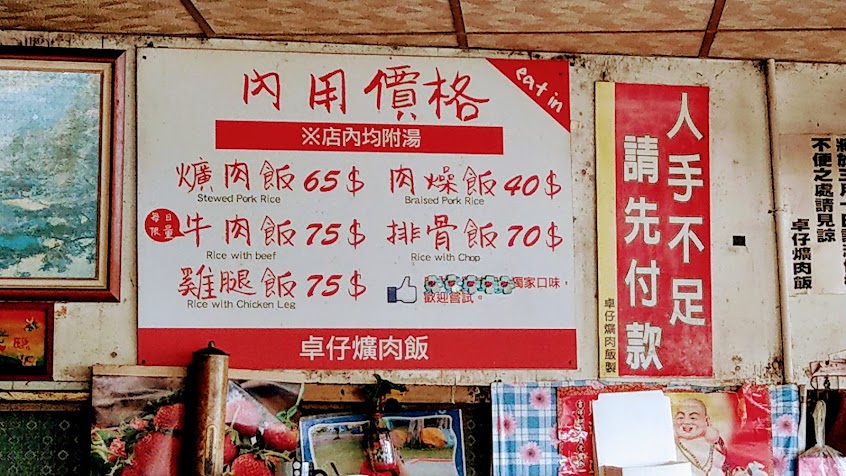 內用價格
eat in
※店內均附湯
爌肉飯65$
Stewed Pork Rice
肉燥飯40$
Braised Pork Rice
每日
限量
牛肉飯75$
Rice with beef
排骨飯70$
Rice with Chop
雞腿飯75$
Rice with Chicken Leg
獨家口味，
歡迎嘗試。
卓仔爌肉飯
人手不足
請先付款
卓仔爌肉飯製
不便之處請見諒
卓仔爌肉飯